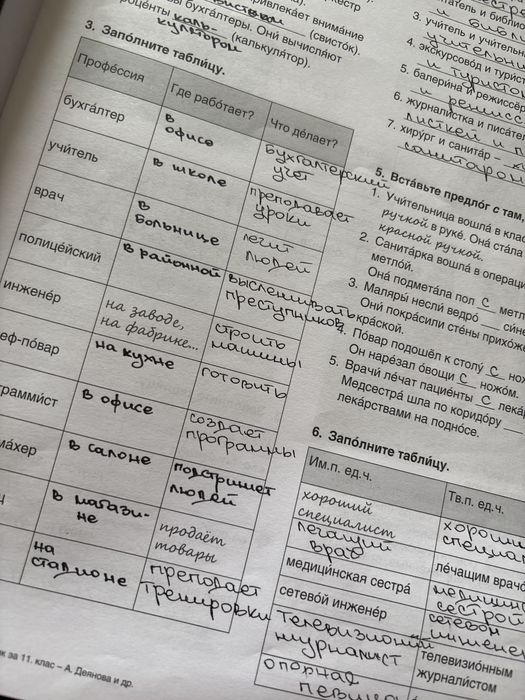 привлекает внимание
(свисток).
бухгалтеры. Они вычисляют
проценты каль-
кулятором (калькулятор).
3. Заполните таблицу.
Профе́ссия Где рабо́тает? Что де́лает?
бухга́лтер в офисе бухгалтерский учёт
учи́тель в школе преподавает уроки
врач в больнице лечит людей
полице́йский в районной выслеживать преступников
инжене́р на заводе, на фабрике... строить машины
еф-по́вар на кухне готовить
граммист в офисе создаёт программы
ма́хер в салоне подстригает людей
в магази-не продаёт товары
на стадионе преподаёт тренировки
к за 11. клас – А. Деянова и др.
3. учи́тель и учени
4. экскурсово́д и тури́с
и туристо
5. балери́на и режиссёр
и режисс
6. журнали́стка и писа́те
листкой и п
7. хиру́рг и санита́р –
санитаром
5. Вста́вьте предло́г с там,
1. Учи́тельница вошла́ в клас
ручкой в руке́. Она́ ста́ла
красной ручкой.
2. Санита́рка вошла́ в операци
метло́й.
Она́ подмета́ла пол с метл
3. Маляры́ несли́ ведро́ си́н
Они́ покра́сили сте́ны прихо́же
кра́ской.
4. По́вар подошёл к столу́ с но
Он наре́зал о́вощи с ножо́м.
5. Врачи́ ле́чат пацие́нты с лека́р
Медсестра́ шла по коридо́ру
лека́рствами на подно́се.
6. Запо́лните табли́цу.
Им.п. ед.ч. Тв.п. ед.ч.
хороший специалист хороши специа
лечащий врач ле́чащим врачо́
медици́нская сестра́ медицин сестрой
сетево́й инжене́р сетевом инжене
телевизионный журналист телевизио́нным журнали́стом
опорная